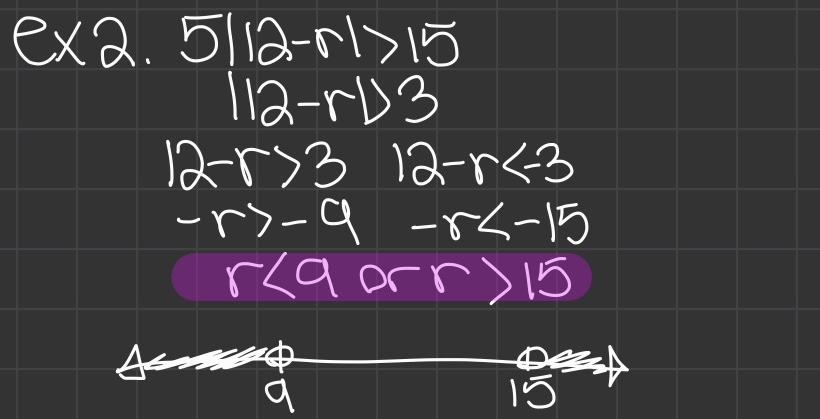 ex2. 5|12-r|>15
|12-r|>3
12-r>3 12-r<-3
-r>-9 -r<-15
r<9 or r>15
9 15